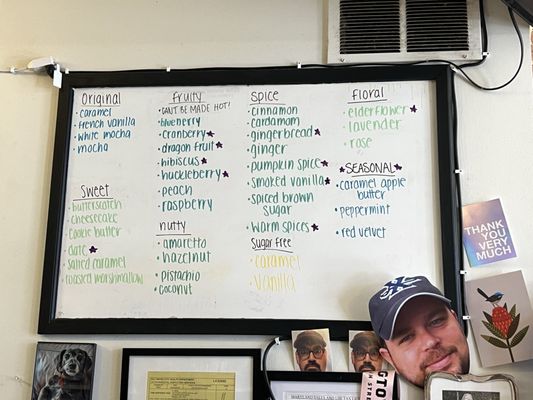 Original
• caramel
• french vanilla
• white mocha
• mocha
Sweet
• butterscotch
• cheesecake
• cookie butter
• date
• salted caramel
• toasted marshmallow
fruity
• CAN'T BE MADE HOT!
• blueberry
• cranberry
• dragon fruit
• hibiscus
• huckleberry
• peach
• raspberry
nutty
• amaretto
• hazelnut
• pistachio
• coconut
Spice
• cinnamon
• cardamom
• gingerbread
• ginger
• pumpkin spice
• smoked vanilla
• spiced brown
sugar
• warm spices
Sugar free
• caramel
• vanilla
floral
• elderflower
• lavender
• rose
SEASONAL
• caramel apple
butter
• peppermint
• red velvet
THANK
YOU VERY
MUCH